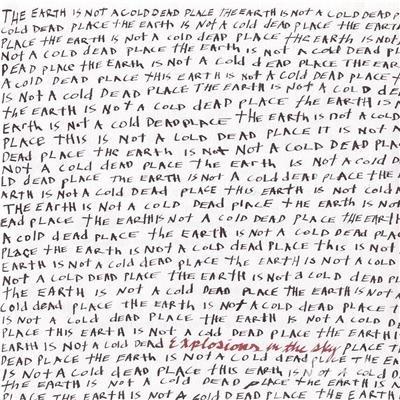 THE EARTH IS NOT A COLD DEAD PLACE THE EARTH IS NOT A COLD DEAD P
COLD DEAD PLACE THE EARTH IS NOT A COLD DEAD PLACE THE EARTH
PLACE THE EARTH IS NOT A COLD DEAD PLACE THE EARTH IS NOT
NOT A COLD DEAD PLACE THE EARTH IS NOT A COLD DEAD PL
DEAD PLACE THE EARTH IS NOT A COLD DEAD PLACE THE EAR
A COLD DEAD PLACE THIS EARTH IS NOT A COLD DEAD PLACE T
IS NOT A COLD DEAD PLACE THE EARTH IS NOT A COLD DE
THE EARTH IS NOT A COLD DEAD PLACE THE EARTH IS N
EARTH IS NOT A COLD DEAD PLACE THE EARTH IS NOT A COLD
PLACE THIS IS NOT A COLD DEAD PLACE IT IS NOT A
DEAD PLACE THE EARTH IS NOT A COLD DEAD PLA
NOT A COLD DEAD PLACE THE EARTH IS NOT A COLD D
LD DEAD PLACE THE EARTH IS NOT A COLD DEAD PLACE THE E
ARTH IS NOT A COLD DEAD PLACE THIS EARTH IS NOT COLD A
THE EARTH IS NOT A COLD DEAD PLACE THE EARTH IS NOT
EAD PLACE THE EARTH IS NOT A COLD DEAD PLACE THE EARTH
A COLD DEAD PLACE THE EARTH IS NOT A COLD DEAD PLACE
PLACE THE EARTH IS NOT A COLD DEAD PLACE THIS IS NOT
EARTH IS NOT A COLD DEAD PLACE THE EARTH IS NOT A COLD
NOT A COLD DEAD PLACE THE EARTH IS NOT A COLD DEAD PL
THE EARTH IS NOT A COLD DEAD PLACE THE EARTH IS NOT A
COLD DEAD PLACE THE EARTH IS NOT A COLD DEAD PLACE T
IS NOT A COLD DEAD PLACE THE EARTH IS NOT A COLD DE
PLACE THIS EARTH IS NOT A COLD DEAD PLACE THE EARTH I
EARTH IS NOT A COLD DEAD Explosions in the sky PLACE T
DEAD PLACE THE EARTH IS NOT A COLD DEAD PLACE THE EA
IS NOT A COLD DEAD PLACE THE EARTH IS NOT A COLD
THE EARTH IS NOT A COLD DEAD PLACE THE EARTH IS NOT